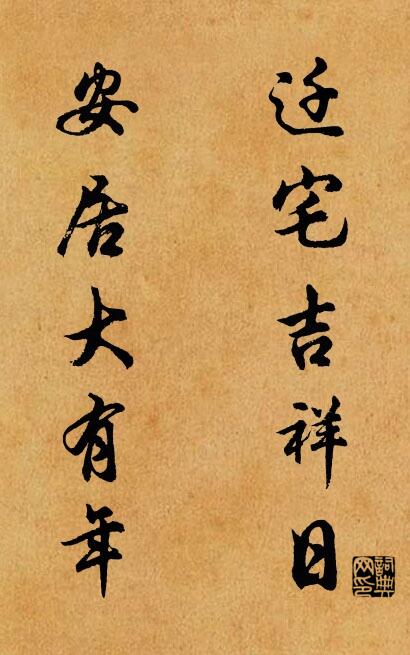 迁宅吉祥日
安居大有年
詞典網印